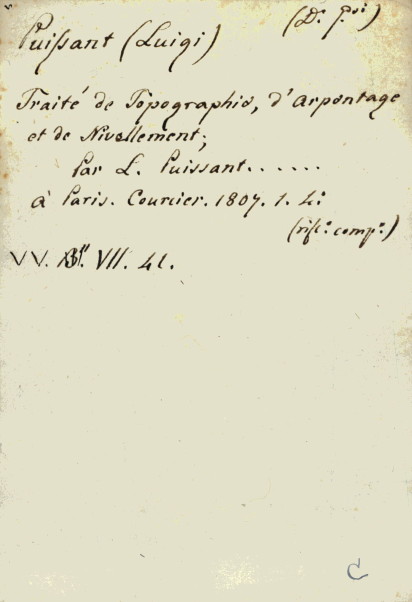 (D.ᵉ P.ˢⁱ)
Puissant (Luigi)
Traité de Topographie, d'Arpentage
et de Nivellement;
Par L. Puissant......
à Paris. Courcier. 1807. 1. 4:
(rifᶜ. comp.ᵉ)
VV. VII. 41.
C